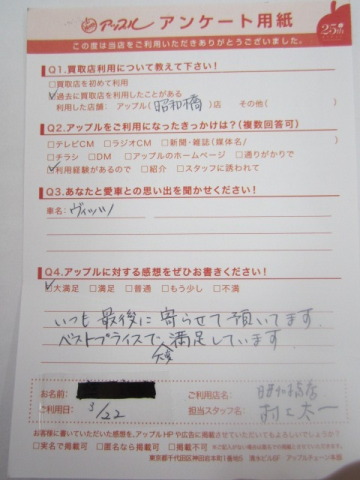 アップル アンケート用紙
25th
この度は当店をご利用いただきありがとうございました。
Q1.買取店利用について教えて下さい!
□買取店を初めて利用
☑過去に買取店を利用したことがある
利用した店舗: アップル( 昭和橋 )店 その他( )
Q2.アップルをご利用になったきっかけは?(複数回答可)
□テレビCM □ラジオCM □新聞・雑誌(媒体名/ )
□チラシ □DM □アップルのホームページ □通りがかりで
☑利用経験があるので □紹介 □スタッフに誘われて
Q3.あなたと愛車との思い出を聞かせください!
車名: ヴィッツ
Q4.アップルに対する感想をぜひお書きください!
☑大満足 □満足 □普通 □もう少し □不満
いつも最後に寄らせて頂いてます。
ベストプライスで大変満足しています
お名前:
ご利用日: 3/22
ご利用店名: 昭和橋店
担当スタッフ名: 村上太一
お客様に書いていただいた感想を、アップルHPや広告に掲載させていただいてもよろしいでしょうか?
□実名で掲載可 □匿名なら掲載可 □掲載不可
東京都千代田区神田岩本町1番地5 清水ビル6F アップルチェーン本部